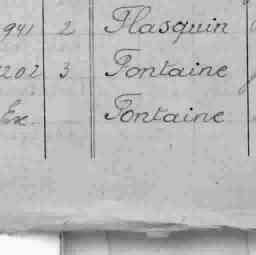 941 2 Flasquin
202 3 Fontaine
Ex. Fontaine